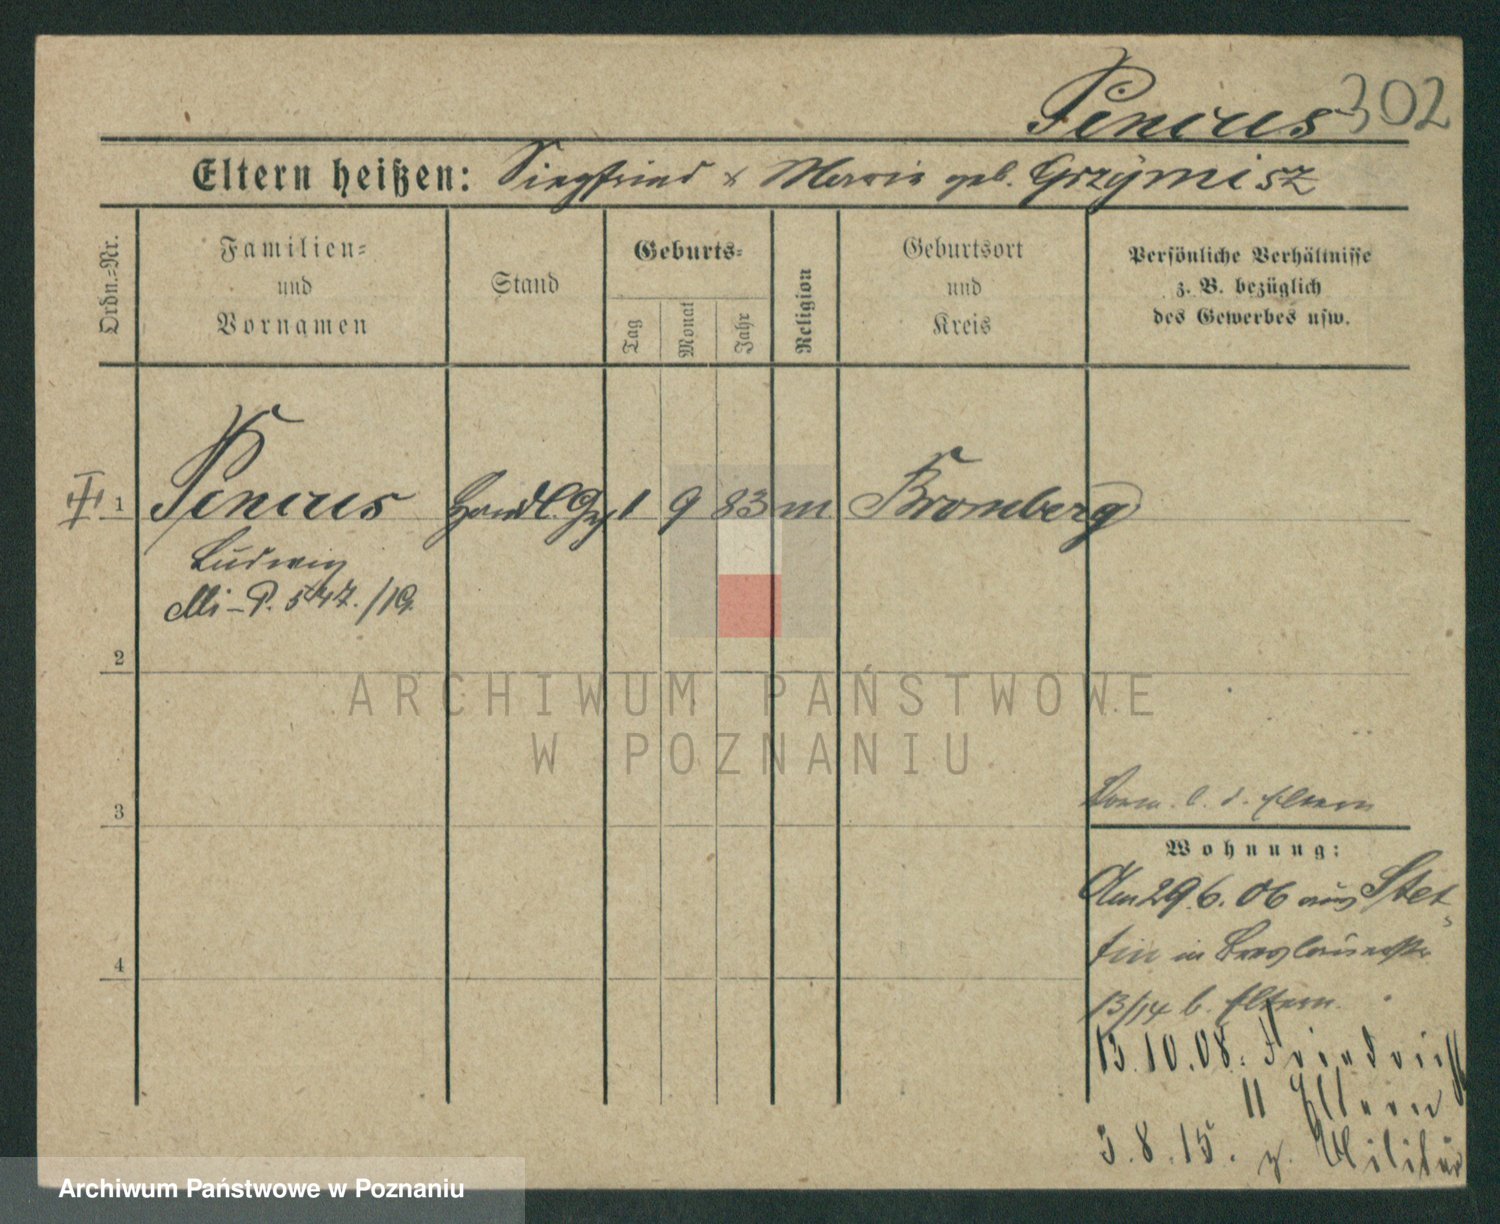 Pincus 302
Eltern heißen: Siegfried & Marie geb. Grzymisz
Ordn.=Nr.
Familien=
und
Vornamen
Stand
Geburts=
Tag
Monat
Jahr
Religion
Geburtsort
und
Kreis
Persönliche Verhältnisse
z. B. bezüglich
des Gewerbes usw.
1 Pincus Handl. 1 9 83 m Bromberg
Ludwig
Mi-P. 547./19.
2
ARCHIWUM PAŃSTWOWE
W POZNANIU
3
b. d. Eltern
Wohnung:
Am 29.6.06 aus Stet=
4
tin in
13/14 b. Eltern.
13.10.08. Friedrichstr
11 Eltern
3.8.15. z. Militär
Archiwum Państwowe w Poznaniu